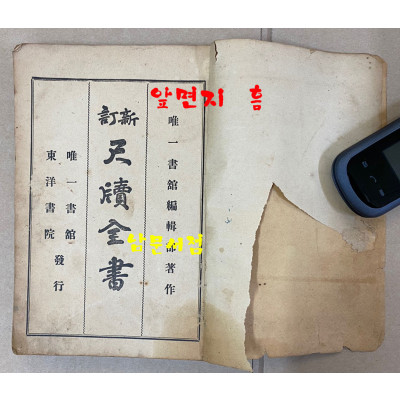 앞면지 흠
唯一書館編輯部著作
新訂
尺牘全書
남문서점
唯一書館
東洋書院 發行